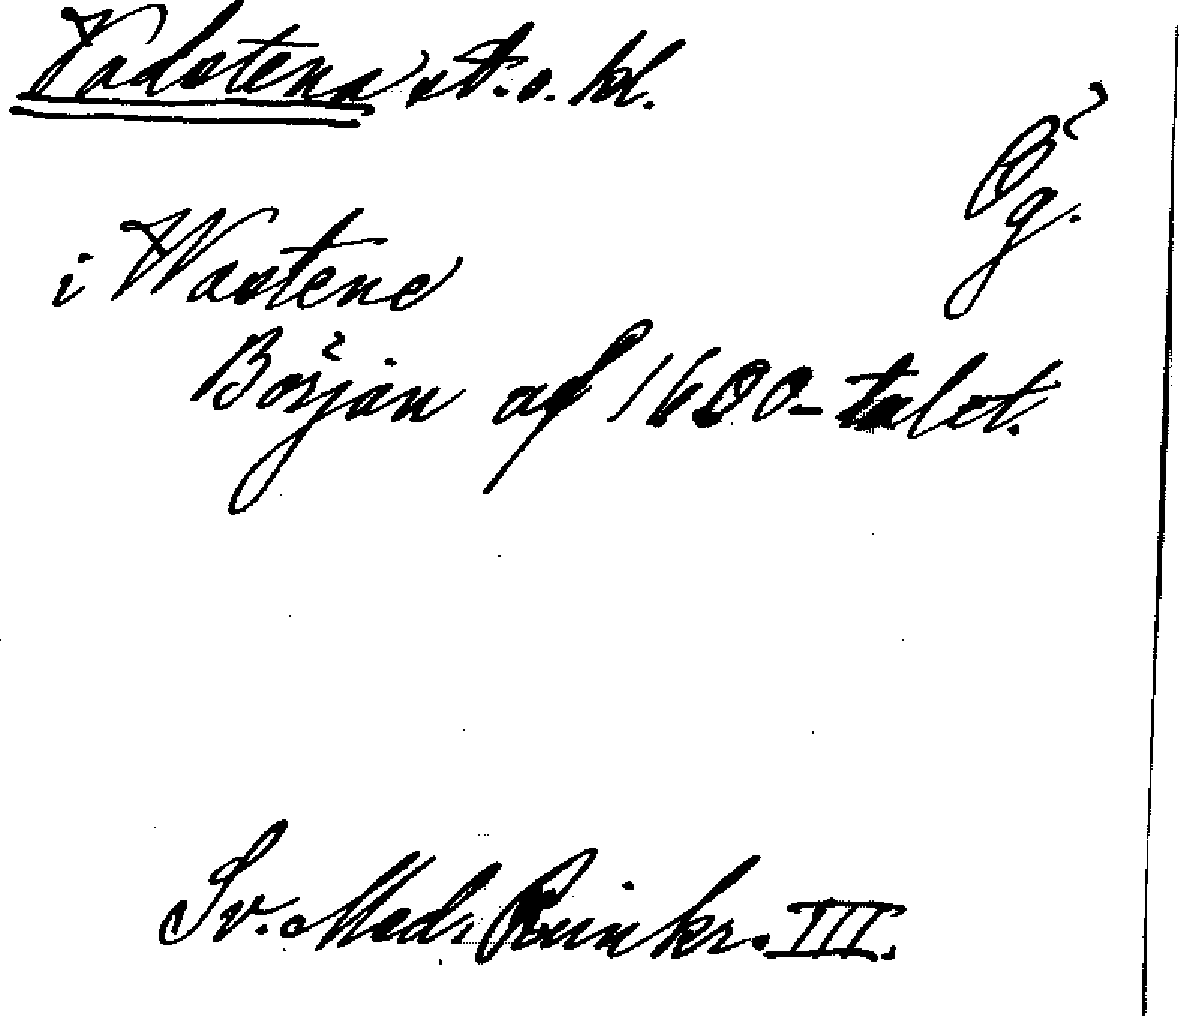 Vadstena st. o. kl.
Ög.
i Wastena
Början af 1600-talet.
Sv. Med. Rimkr. III.